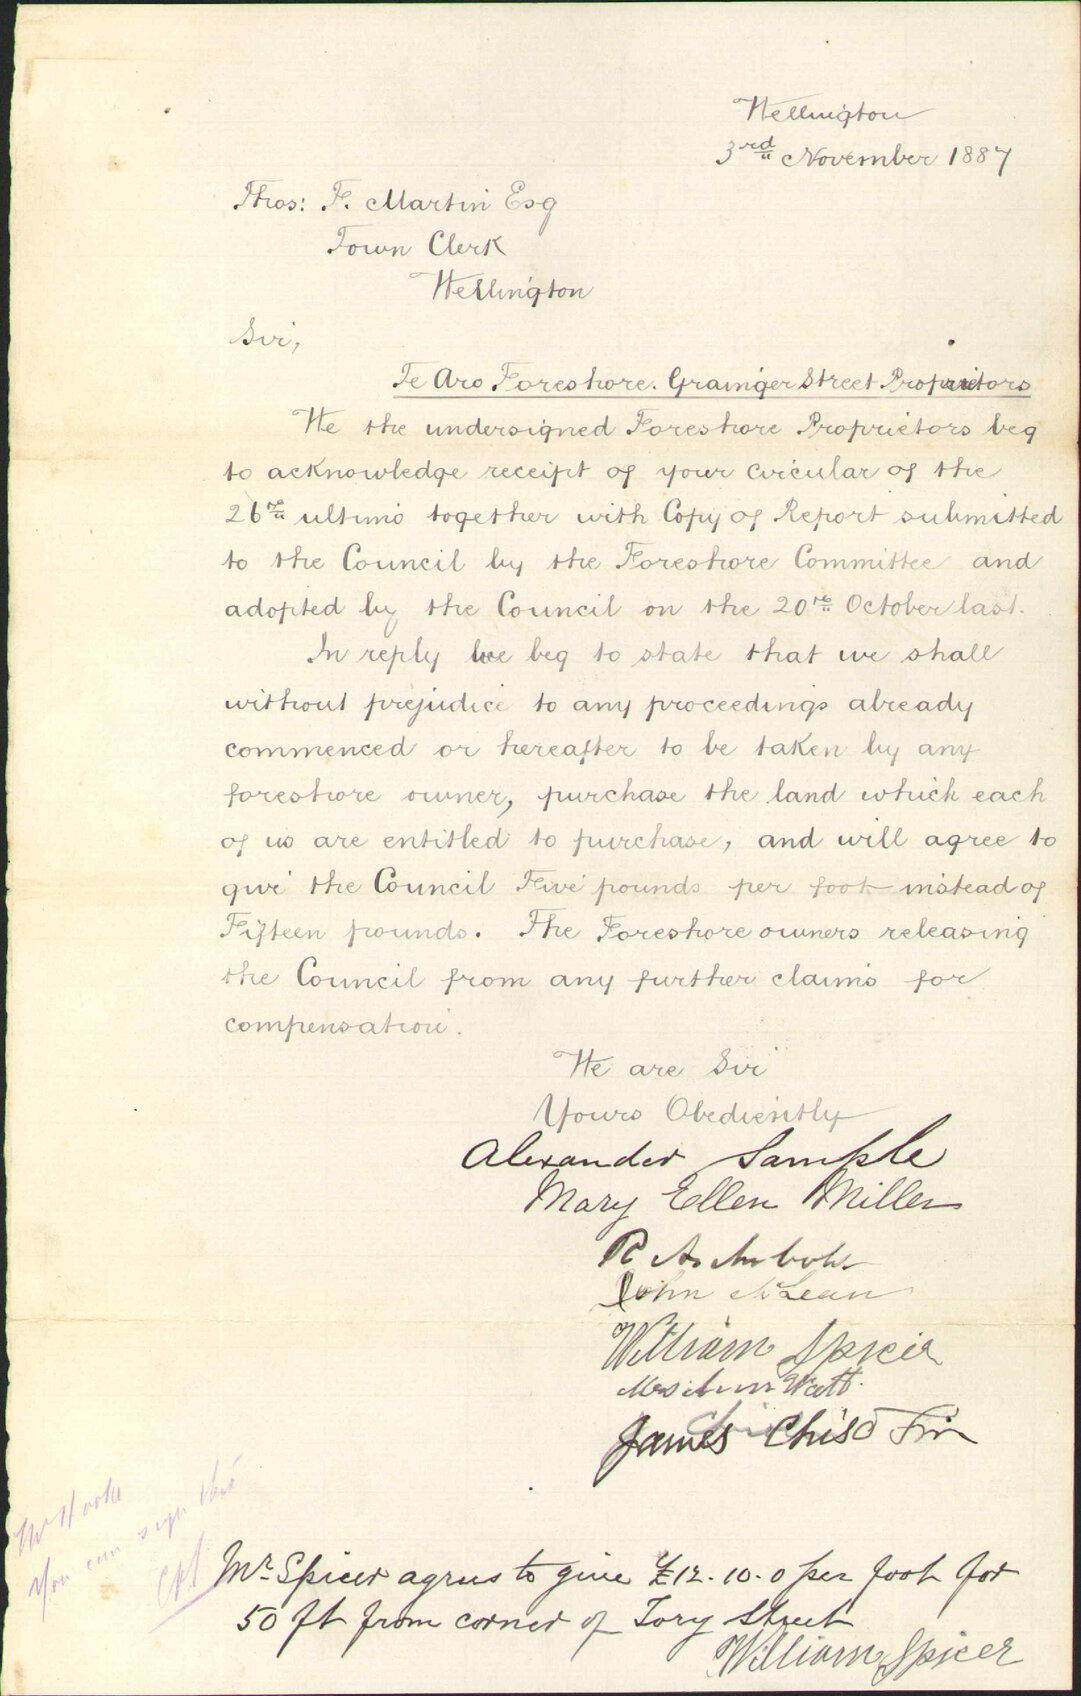 Wellington
3rd November 1887
Thos: F. Martin Esq
Town Clerk
Wellington
Sir,
Te Aro Foreshore. Grainger Street Proprietors
We the undersigned Foreshore Proprietors beg
to acknowledge receipt of your circular of the
26th ultimo together with Copy of Report submitted
to the Council by the Foreshore Committee and
adopted by the Council on the 20th October last.
In reply we beg to state that we shall
without prejudice to any proceedings already
commenced or hereafter to be taken by any
foreshore owner, purchase the land which each
of us are entitled to purchase, and will agree to
give the Council Five pounds per foot instead of
Fifteen pounds. The Foreshore owners releasing
the Council from any further claims for
compensation.
We are Sir
Yours Obediently
Alexander Sample
Mary Ellen Miller
R
John McLean
William Spicer
Mrs Watt.
James
Mr
You can sign this
Mr Spicer agrees to give £12.10.0 per foot for
50 ft from corner of Tory Street
William Spicer